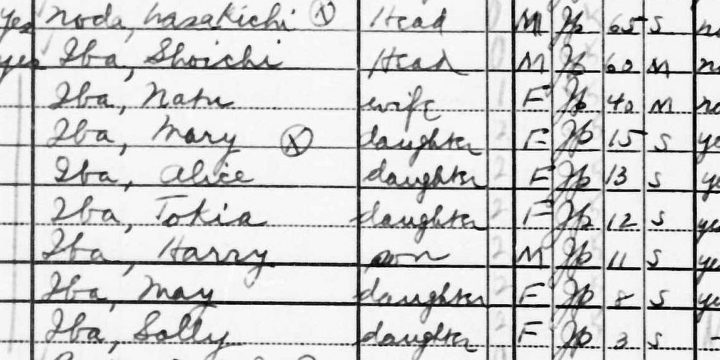 yes Noda, Wasakichi Ⓧ Head M Jp 65 S no
yes Iba, Shoichi Head M Jp 60 M no
Iba, Natu wife F Jp 40 M no
Iba, Mary Ⓧ daughter F Jp 15 S ye
Iba, Alice daughter F Jp 13 S ye
Iba, Tokia daughter F Jp 12 S yes
Iba, Harry son M Jp 11 S ye
Iba, May daughter F Jp 8 S ye
Iba, Sally daughter F Jp 3 S -